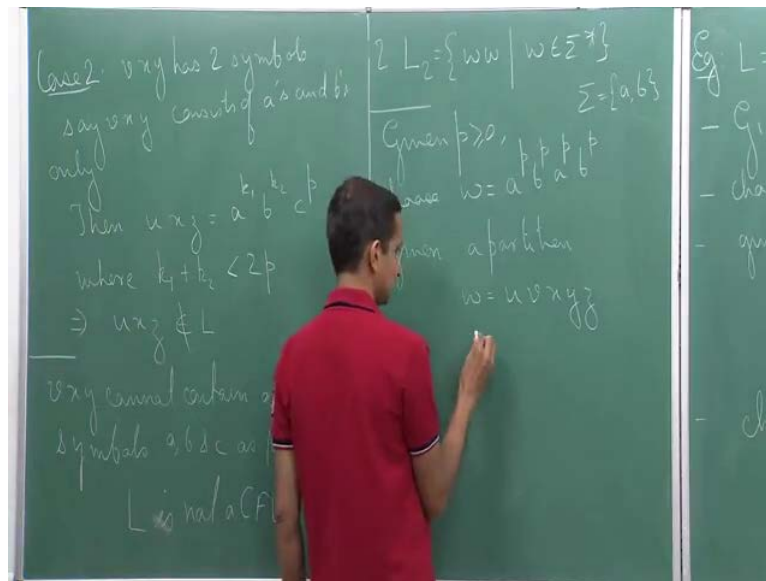 Case 2: vxy has 2 symbols
say vxy consists of a's and b's
only
Then uxz = a^{k_1} b^{k_2} c^p
where k_1 + k_2 < 2p
⇒ uxz ∉ L
vxy cannot contain
symbols a, b & c as
L is not a CF
2 L_2 = {ww | w ∈ Σ*}
Σ = {a, b}
Given p ≥ 0,
w = a^p b^p a^p b^p
a partition
w = uvxyz
Eg: L =
-
- cha
-
- ch